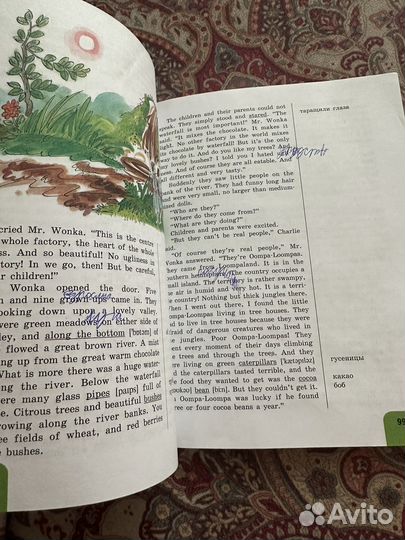 cried Mr. Wonka. "This is the centre
whole factory, the heart of the whole
ss. And so beautiful! No ugliness in
tory! In we go, then! But be careful,
r children!"
Wonka opened the door. Five
n and nine grown-ups came in. They
ooking down upon lovely valley.
were green meadows on either side
ley, and along the bottom [bɒtəm]
e flowed a great brown river. A mist
ing up from the great warm chocolate
What is more there was a huge water-
along the river. Below the waterfall
ere many glass pipes [paɪps] full of
te. Citrous trees and beautiful bushes
rowing along the river banks. You
ee fields of wheat, and red berries
e bushes.
The children and their parents could not
speak. They simply stood and stared. "The
waterfall is most important!" Mr. Wonka
said. "It mixes the chocolate. It makes it
No other factory in the world mixes
chocolate by waterfall! But it's the only
way to do it. And do you like my trees? And
our lovely bushes? I told you I hated
And of course they are all eatable. And
all different and very tasty."
Suddenly they saw little people on the
bank of the river. They had funny long hair
and were very small, no larger than medium-
sized dolls.
"Who are they?"
"Where do they come from?"
"What are they doing?"
Children and parents were excited.
"But they can't be real people," Charlie
said.
"Of course they're real people," Mr.
Wonka answered. "They're Oompa-Loompas.
They came from Loompaland. It is in the
southern hemisphere. The country occupies a
small island. The territory is rather swampy,
the air is humid and very hot. It is a terri-
ble country! Nothing but thick jungles there.
When I went out there, I found the little
Oompa-Loompas living in tree houses. They
had to live in tree houses because they were
afraid of dangerous creatures who lived in
the jungles. Poor Oompa-Loompas! They
spent every moment of their days climbing
the trees and through the trees. And they
were living on green caterpillars [kætəpɪləz]
and the caterpillars tasted terrible, and the
one food they wanted to get was the cocoa
[kəʊkəʊ] bean [biːn]. But they couldn't get it.
An Oompa-Loompa was lucky if he found
three or four cocoa beans a year."
таращили глаза
гусеницы
какао
боб
99
Avito